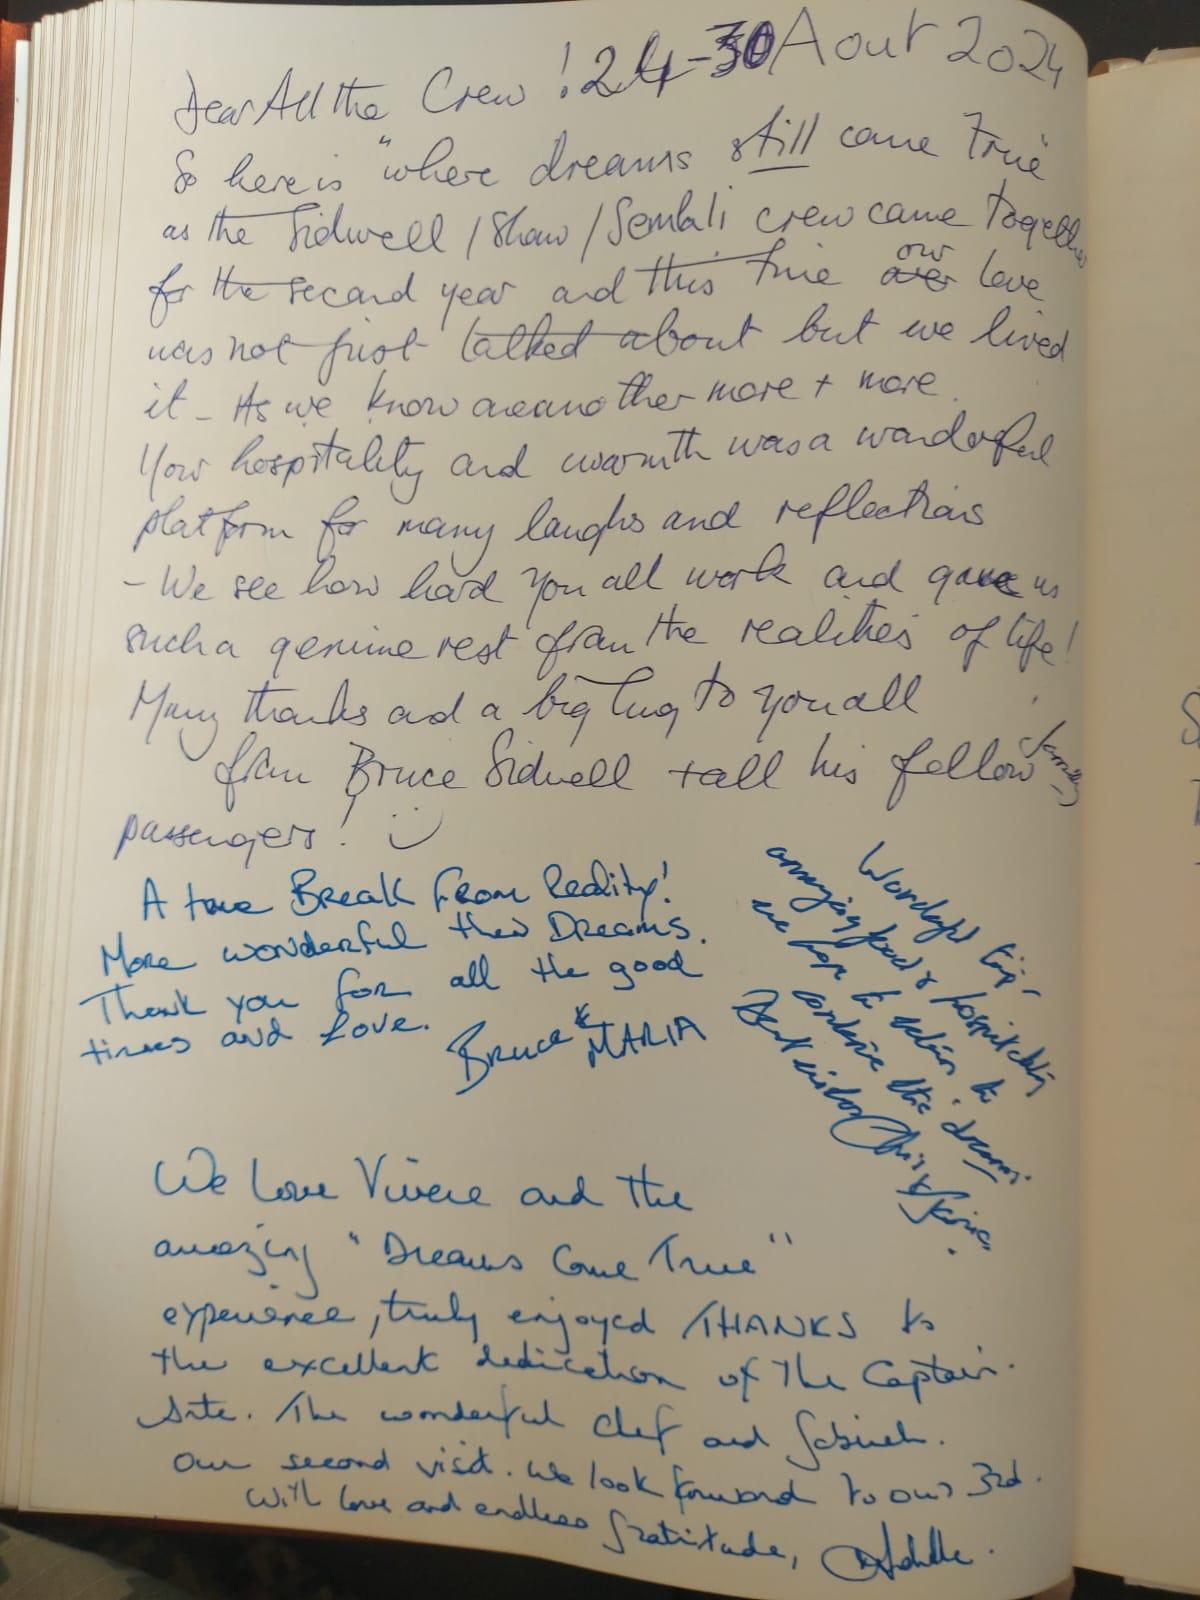 24-30 Aout 2024
Dear All the Crew!
So here is "where dreams still come True"
as the Sidwell / Shaw / Sembli crew came Together
for the second year and this time our love
was not just talked about but we lived
it - As we know oneanother more + more.
Your hospitality and warmth was a wonderful
platform for many laughs and reflections
- We see how hard you all work and gave us
such a genuine rest from the realities of life!
Many thanks and a big hug to you all
from Bruce Sidwell + all his fellow family
passengers!
A true Break From Reality!
More wonderful then Dreams.
Thank you for all the good
times and love.
Bruce & MARIA
Wonderful trip -
amazing food & hospitality
we hope to return to
continue the dreams.
Best wishes Chris &
We Love Vivere and the
amazing "Dreams Come True"
experience, truly enjoyed THANKS to
the excellent dedication of The Captain.
The wonderful Chef and
Our second visit. We look forward to our 3rd.
With love and endless gratitude,